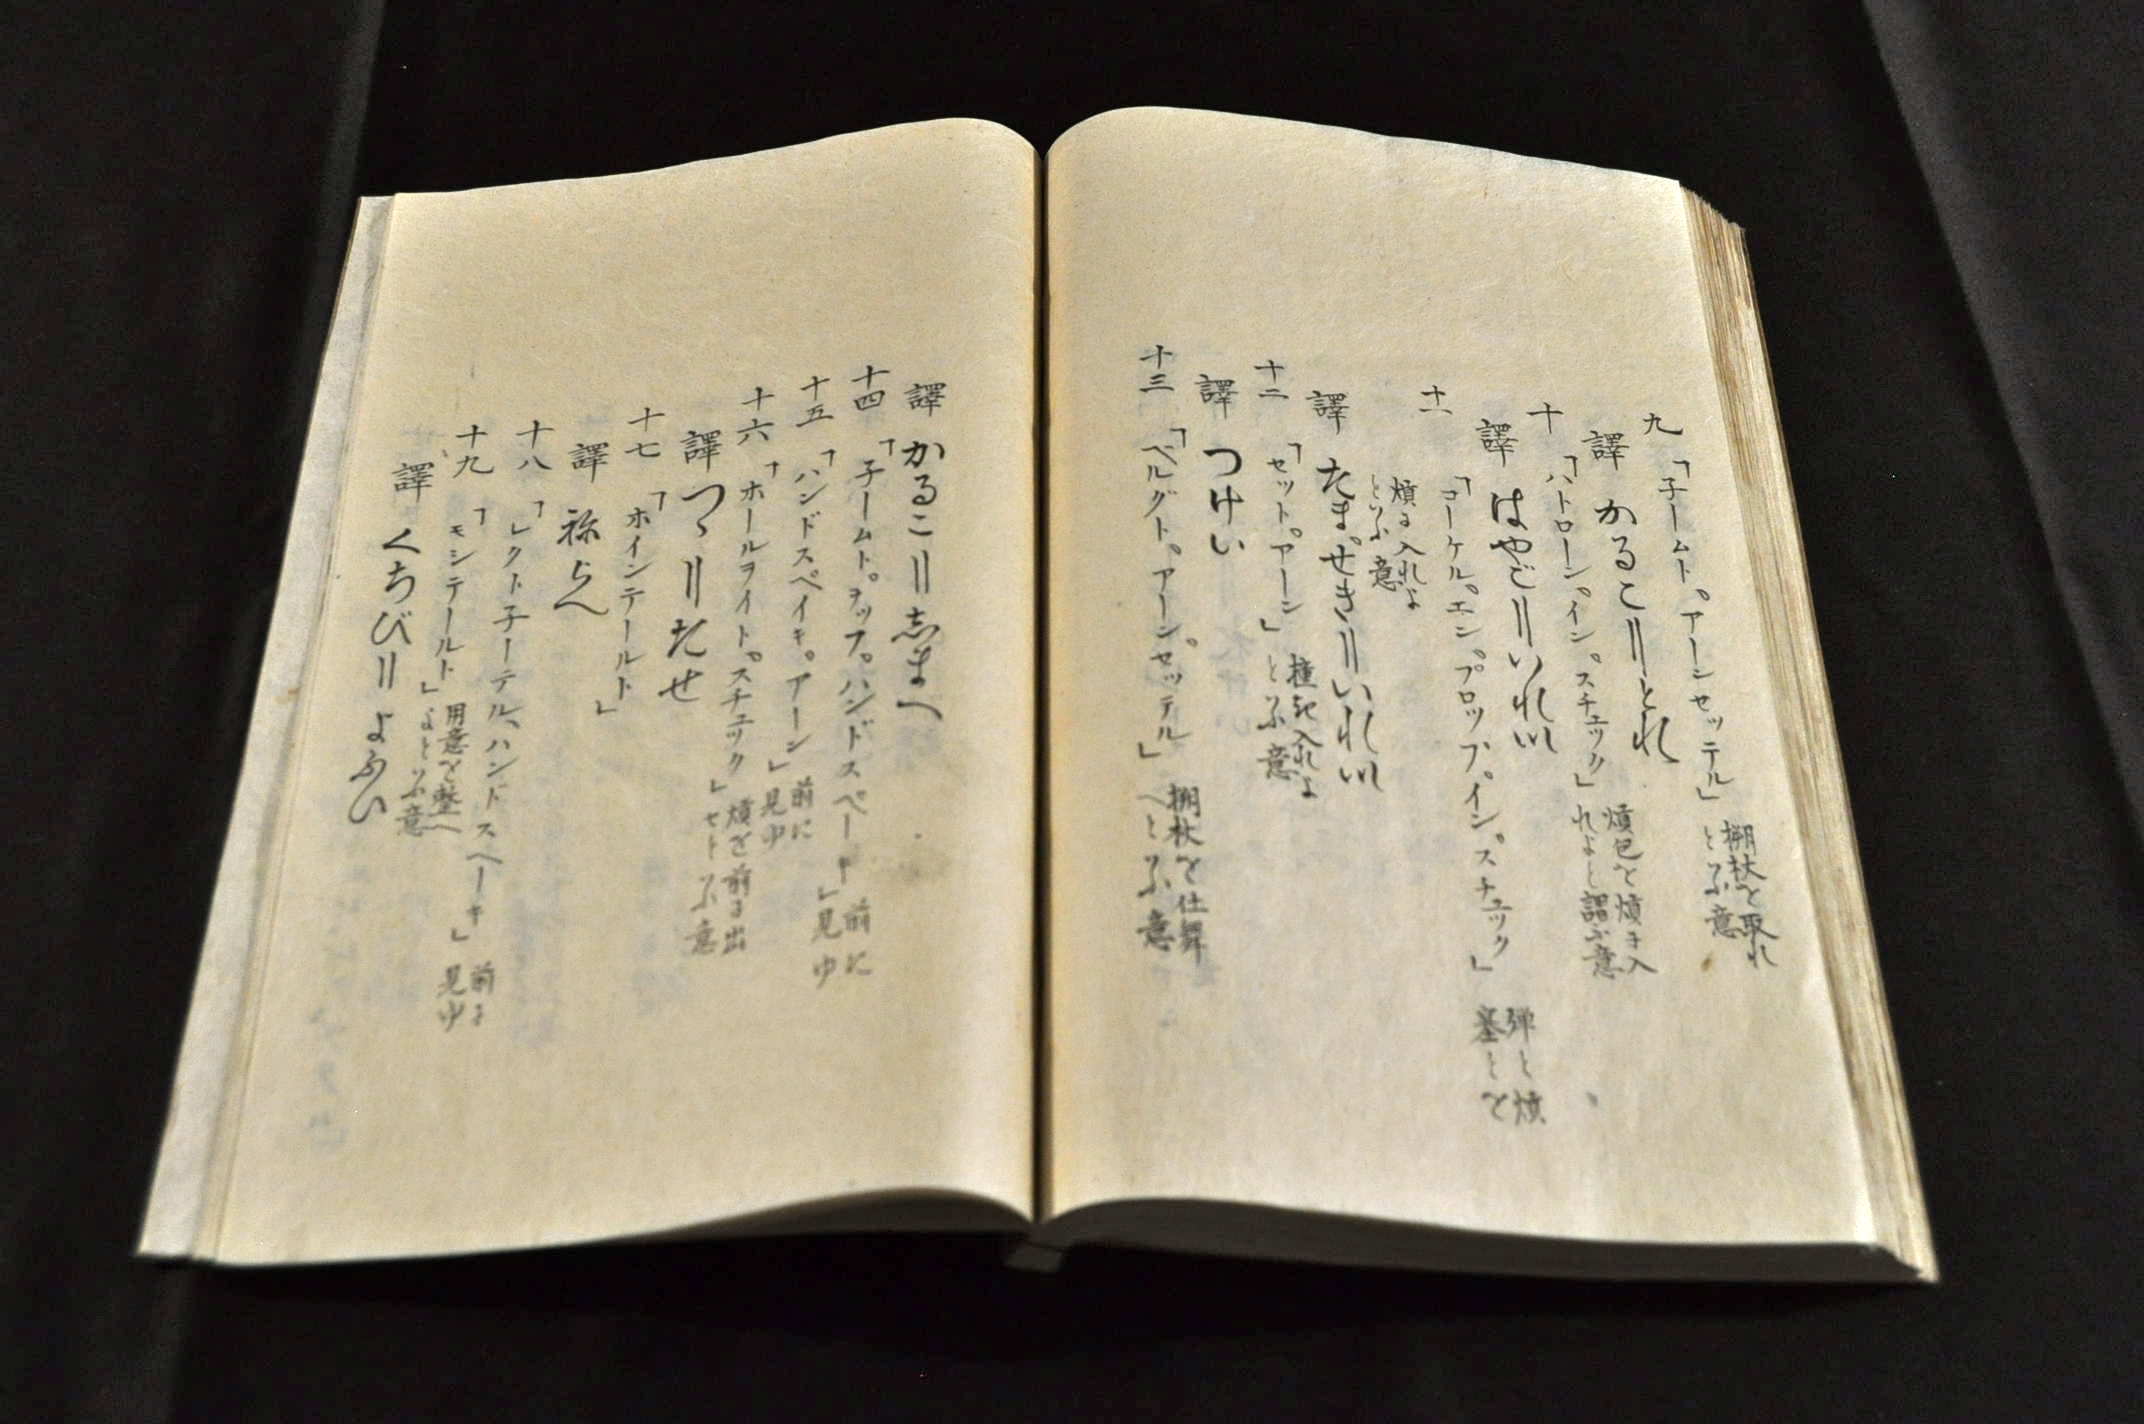 九「子ームト。アーンセッテル」搠杖を取れとふ意
譯 かるこ॥とれ
十「ハトローン。イン。スチュック」熕包を熕に入れよと謂ふ意
譯 はやご॥いれい
十一「コーケル。エン。プロップ。イン。スチュック」弾と熕塞とを
熕に入れよとふ意
譯 たま。せき॥いれい
十二「セット。アーン」撞込入れよとふ意
譯 つけい
十三「ベルグト。アーン。セッテル」搠杖を仕舞へとふ意
譯 かるこ॥志まへ
十四「子ームト。ヲップ。ハンドスペーキ」前に見ゆ
十五「ハンドスペイキ。アーン」前に見ゆ
十六「ホールヲイト。スチュック」熕を前に出セトふ意
譯 つゝ॥だせ
十七「ホインテールト」
譯 祢らへ
十八「レクト子ーテル、ハンドスペーキ」前に見ゆ
十九「モンテールト」用意を整へよとふ意
譯 くちび॥よふい